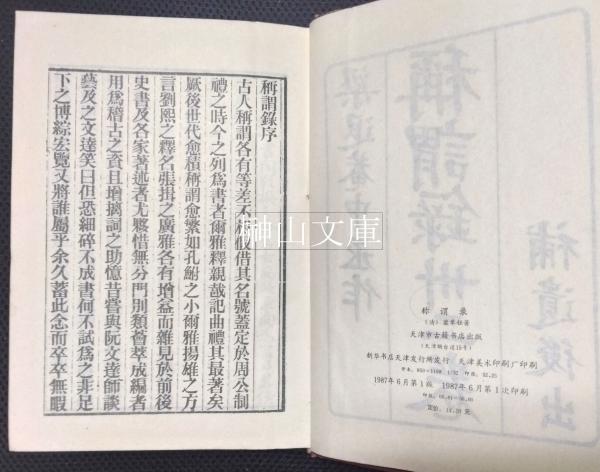 稱謂錄序
古人稱謂各有等差不能假借其名號蓋定於周公制
禮之時今之列為書者爾雅釋親哉記曲禮其最著矣
厥後世代愈積稱謂愈繁如孔鮒之小爾雅揚雄之方
言劉熙之釋名張揖之廣雅各有增益而雜見於前後
史書及各家著述者尤夥惜無分門別類薈萃成編者
用為稽古之資且增摛詞之助憶昔嘗與阮文達師談
藝及之文達笑曰但恐細碎不成書何不試為之非足
下之博綜宏覽又將誰屬乎余久蓄此念而卒卒無暇
榊山文庫
稱謂錄卅
梁退菴中丞作
補遺後出
称谓录
（清）梁章钜著
天津市古籍书店出版
新华书店天津发行所发行 天津美术印刷厂印刷
开本：850×1168 1/32 印张：22.25
1987年6月第1版 1987年6月第1次印刷